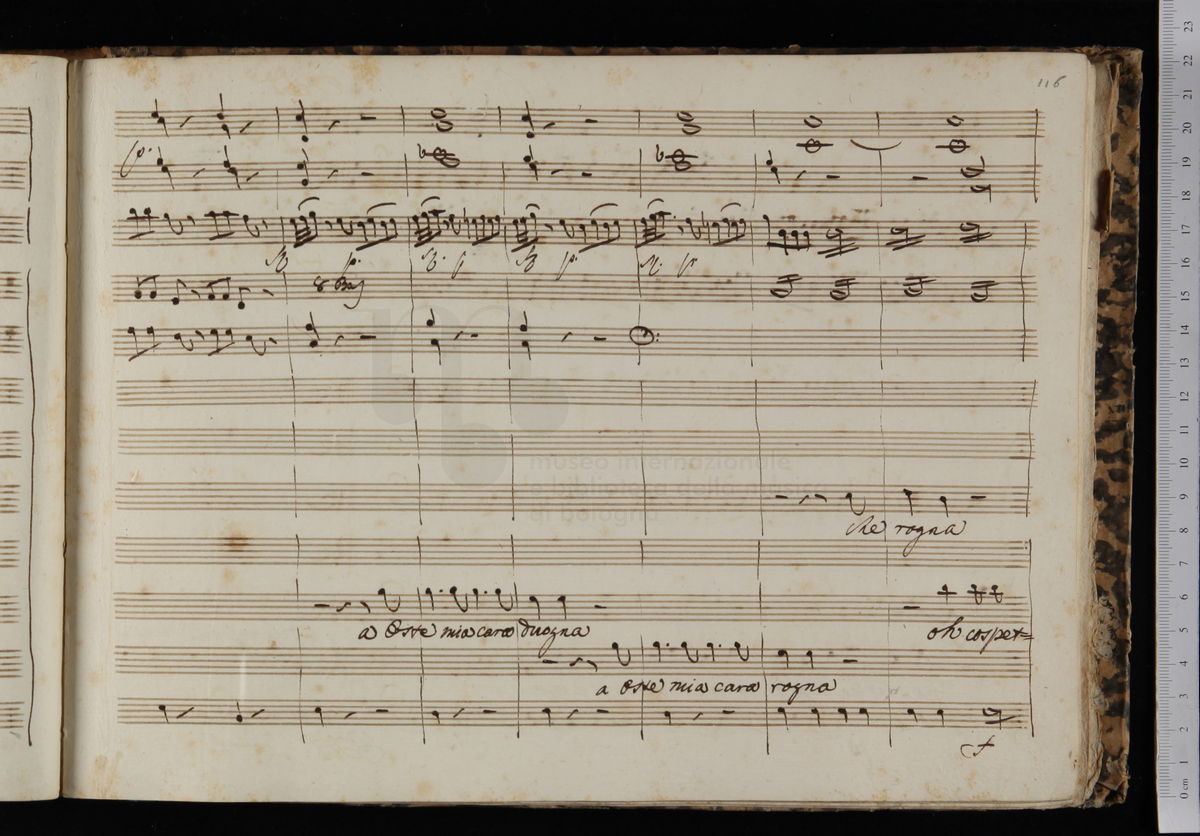 116
p.
8 Bas
museo internazionale
e biblioteca della musica
di bologna
che rogna
a Oste mia cara duogna
oh cospet=
a Oste mia cara rogna
f
23 22 21 20 19 18 17 16 15 14 13 12 11 10 9 8 7 6 5 4 3 2 1 0 cm